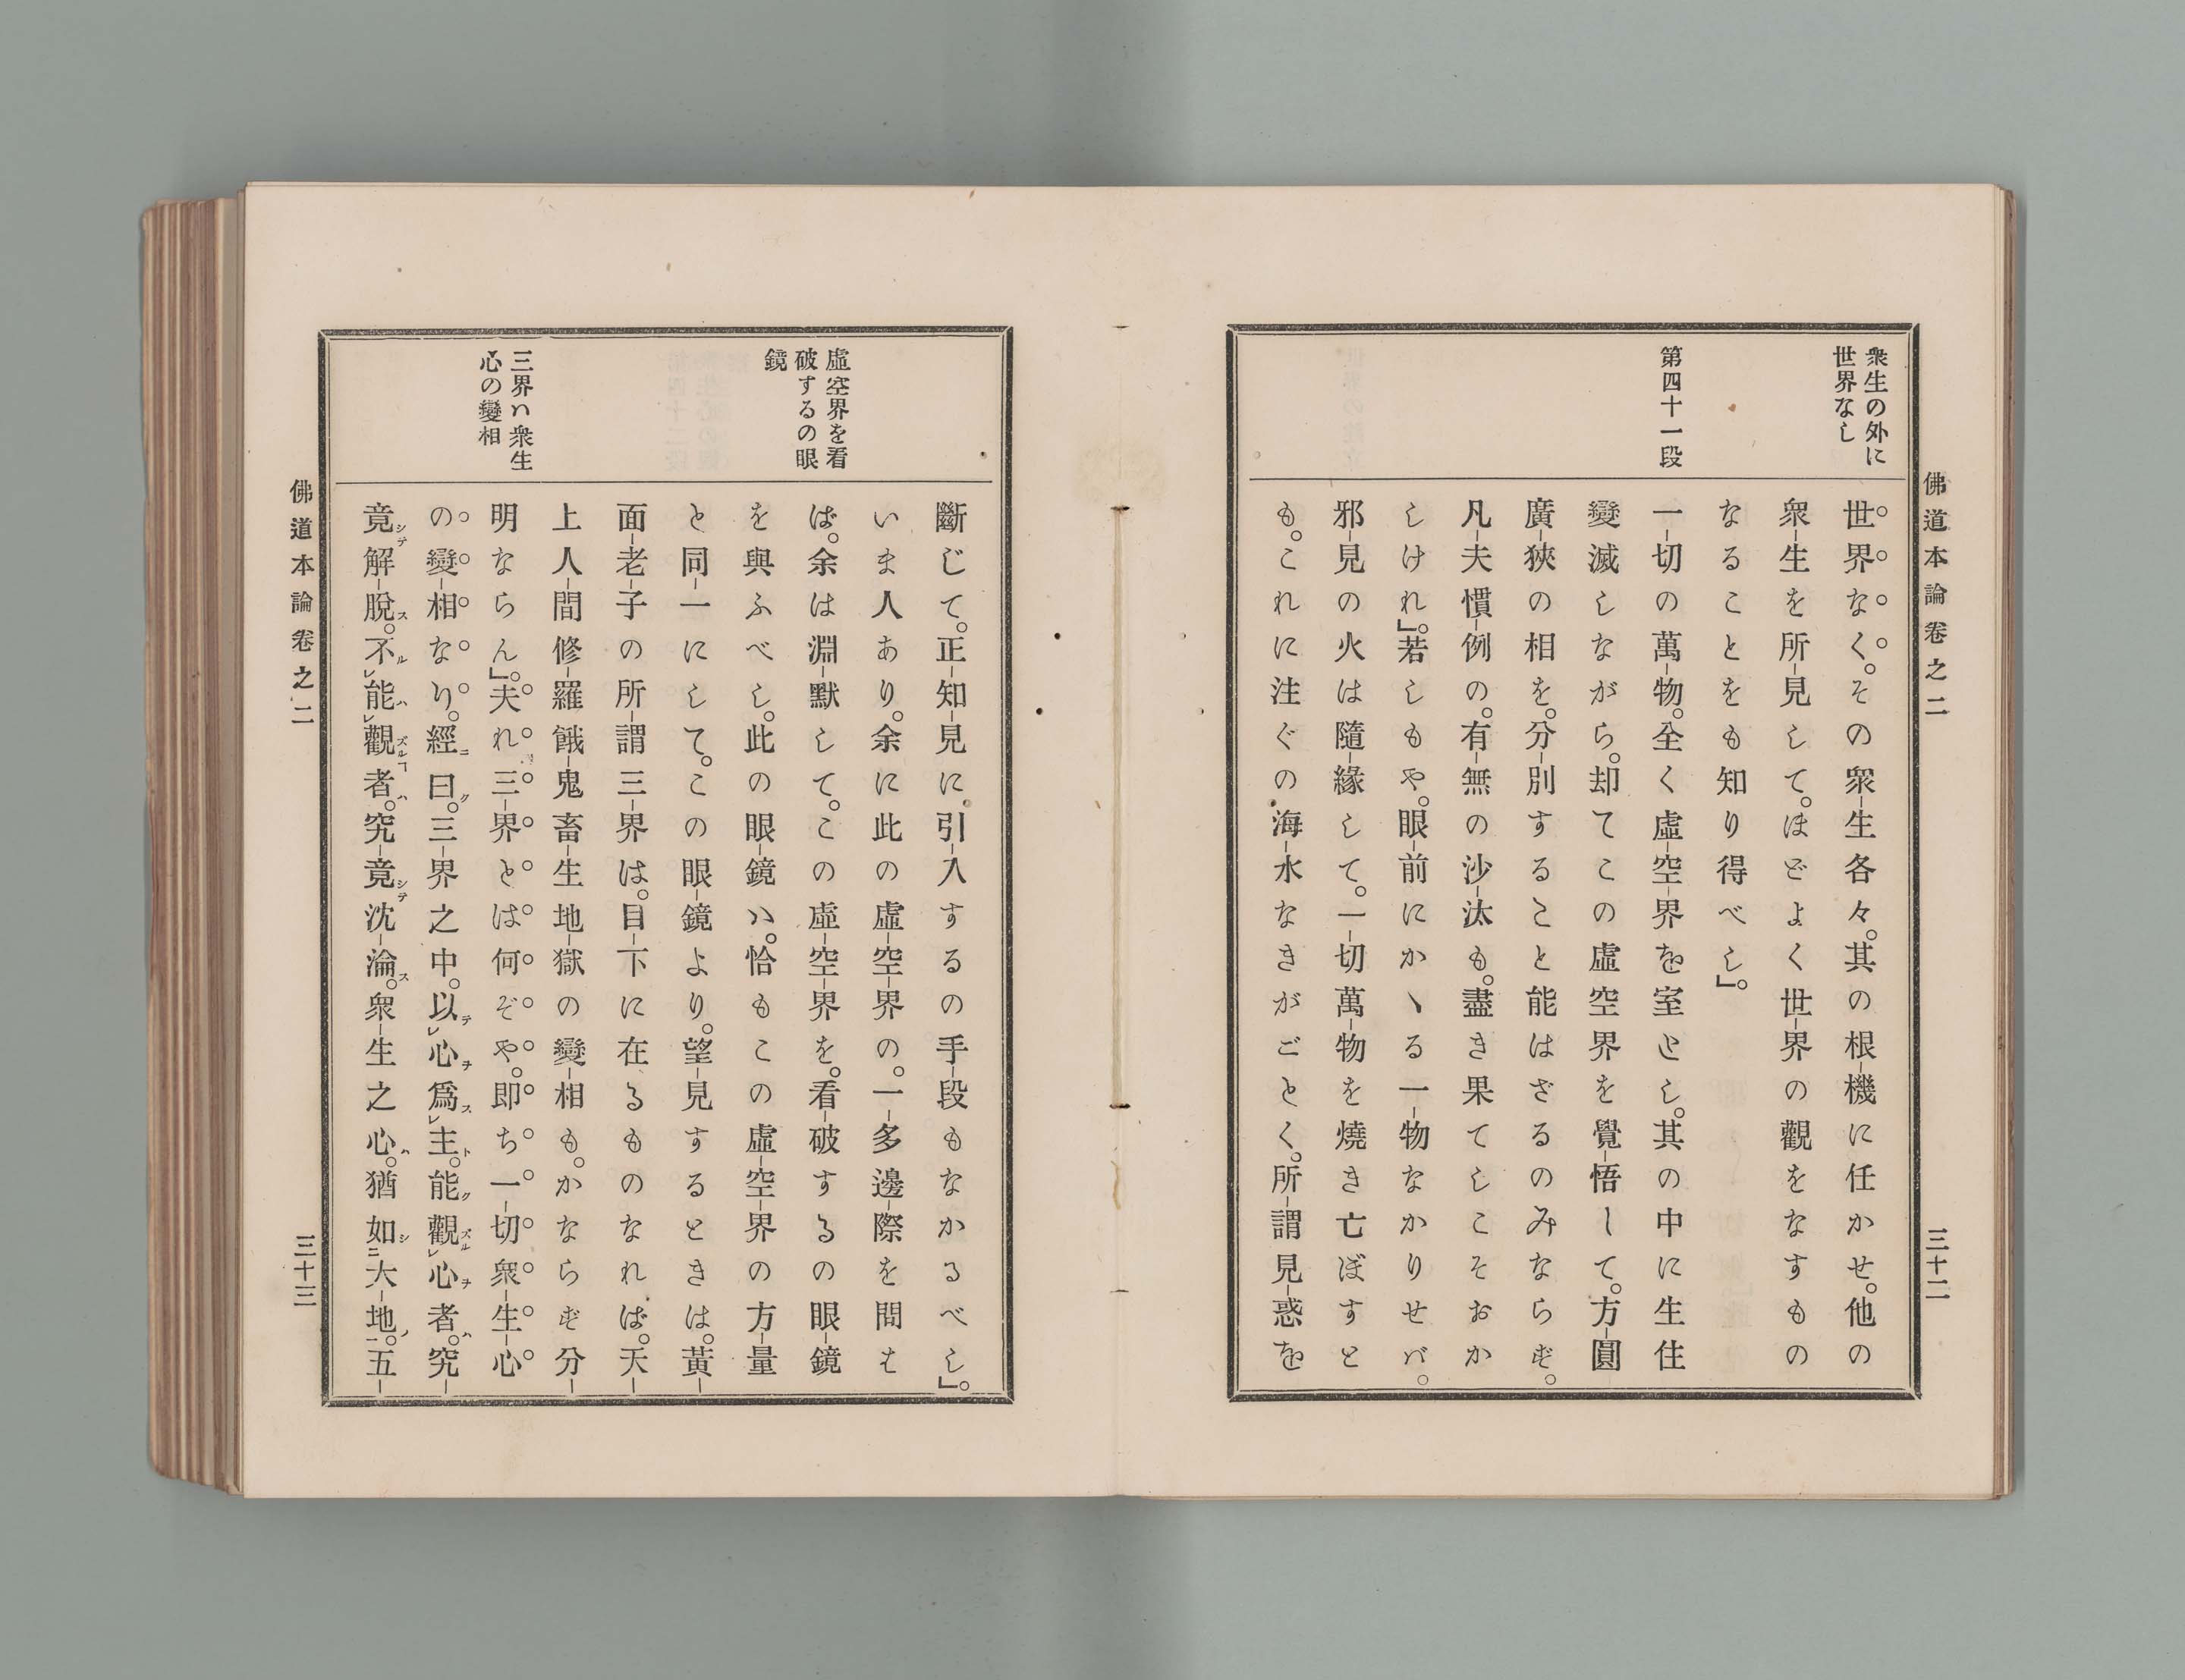 佛道本論卷之二
三十二
衆生の外に
世界なし
第四十一段
世界なく。その衆生各々。其の根機に任かせ。他の
衆生を所見して。ほどよく世界の觀をなすもの
なることをも知り得べし」。
一切の萬物。全く虛空界を室とし。其の中に生住
變滅しながら。却てこの虛空界を覺悟して。方圓
廣狹の相を。分別すること能はざるのみならず。
凡夫慣例の。有無の沙汰も。盡き果てしこそおか
しけれ」。若しもや。眼前にかゝる一物なかりせバ。
邪見の火は隨緣して。一切萬物を燒き亡ぼすと
も。これに注ぐの海水なきがごとく。所謂見惑を
斷じて。正知見に引入するの手段もなかるべし」。
いま人あり。余に此の虛空界の。一多邊際を問は
ば。余は淵默して。この虛空界を。看破するの眼鏡
を與ふべし。此の眼鏡ハ。恰もこの虛空界の方量
と同一にして。この眼鏡より。望見するときは。黃
面老子の所謂三界は。目下に在るものなれば。天
上人間修羅餓鬼畜生地獄の變相も。かならず分
明ならん」。夫れ三界とは何ぞや。即ち一切衆生心
の變相なり。經ニ曰ク。三界之中。以テレ心ヲ爲スレ主ト。能ク觀ズルレ心ヲ者ハ。究
竟シテ解脫ス。不ルレ能ハレ觀ズルヿ者ハ。究竟シテ沈淪ス。衆生之心ハ。猶如シ二大地ノ一。五
虛空界を看
破するの眼
鏡
三界ハ衆生
心の變相
佛道本論卷之二
三十三